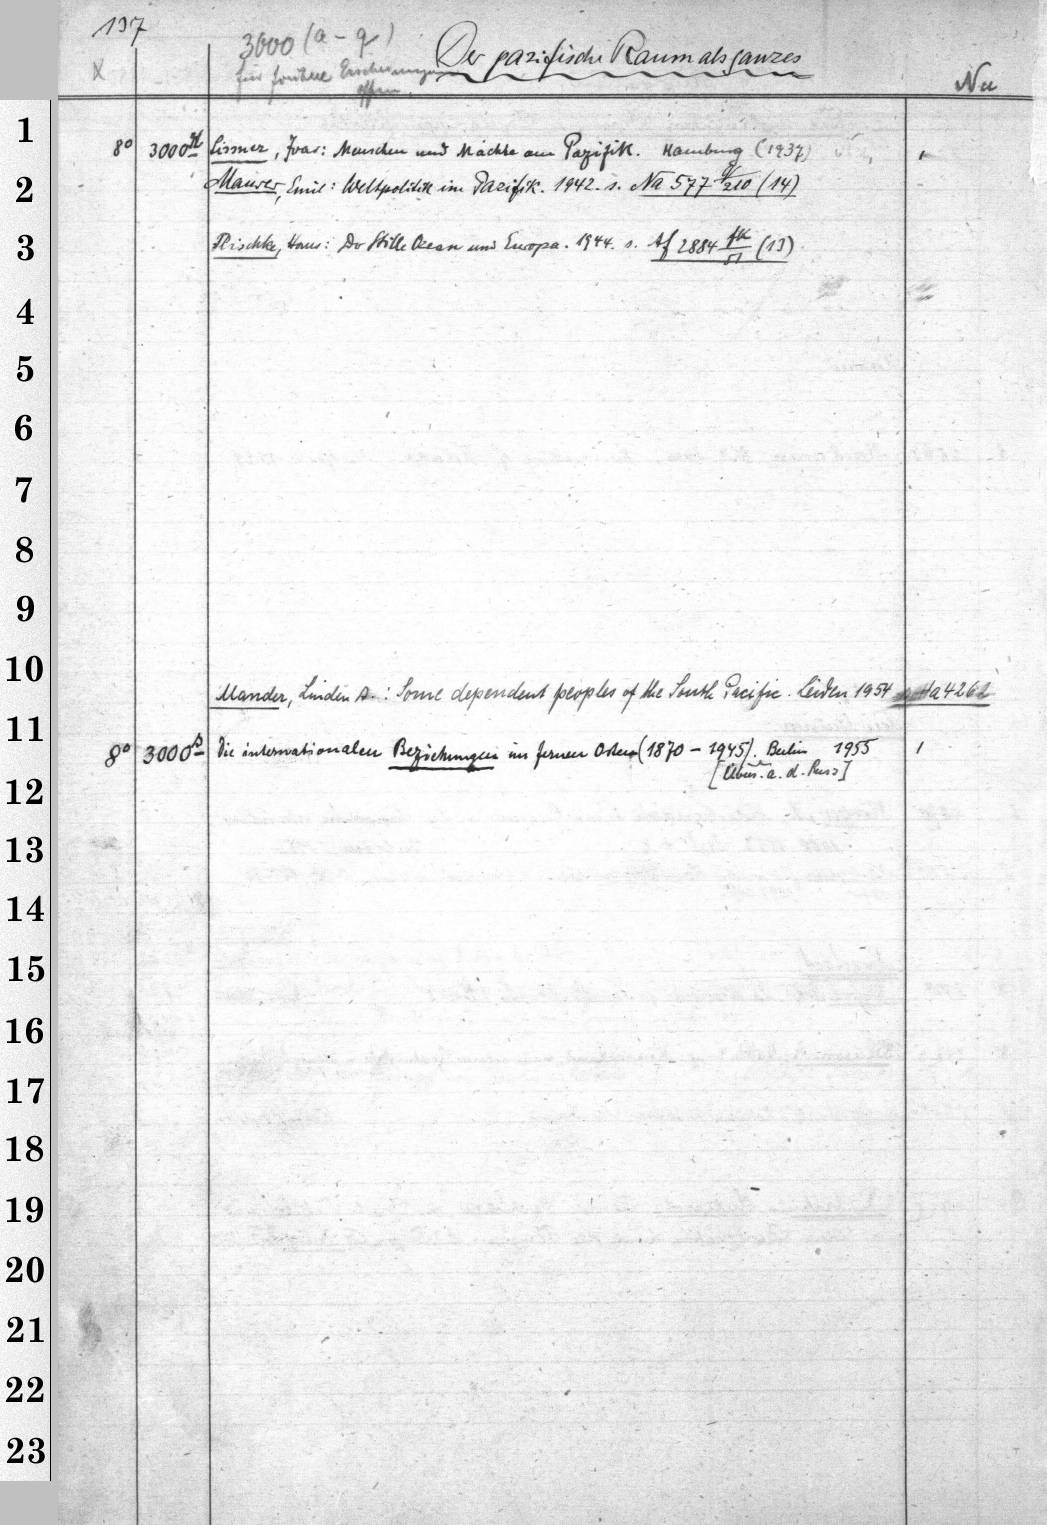 197
3000 (a - q)
für frühere Erscheinungen
offen.
Der pazifische Raum als ganzes
Nu
X
1
8° 3000 Lissner, Ivar: Menschen und Mächte am Pazifik. Hamburg (1937) 1
2
Maurer, Emil: Weltpolitik im Pazifik. 1942. s. Na 577 /210 (14)
3
Plischke, Hans: Der Stille Ozean und Europa. 1944. s. Af 2884 /51 (13)
4
5
6
7
8
9
10
Mander, Linden A.: Some dependent peoples of the South Pacific. Leiden 1954 Ha 4262
11
8° 3000 s Die internationalen Beziehungen im fernen Osten (1870 - 1945). Berlin 1955 1
[Übers. a. d. Russ]
12
13
14
15
16
17
18
19
20
21
22
23